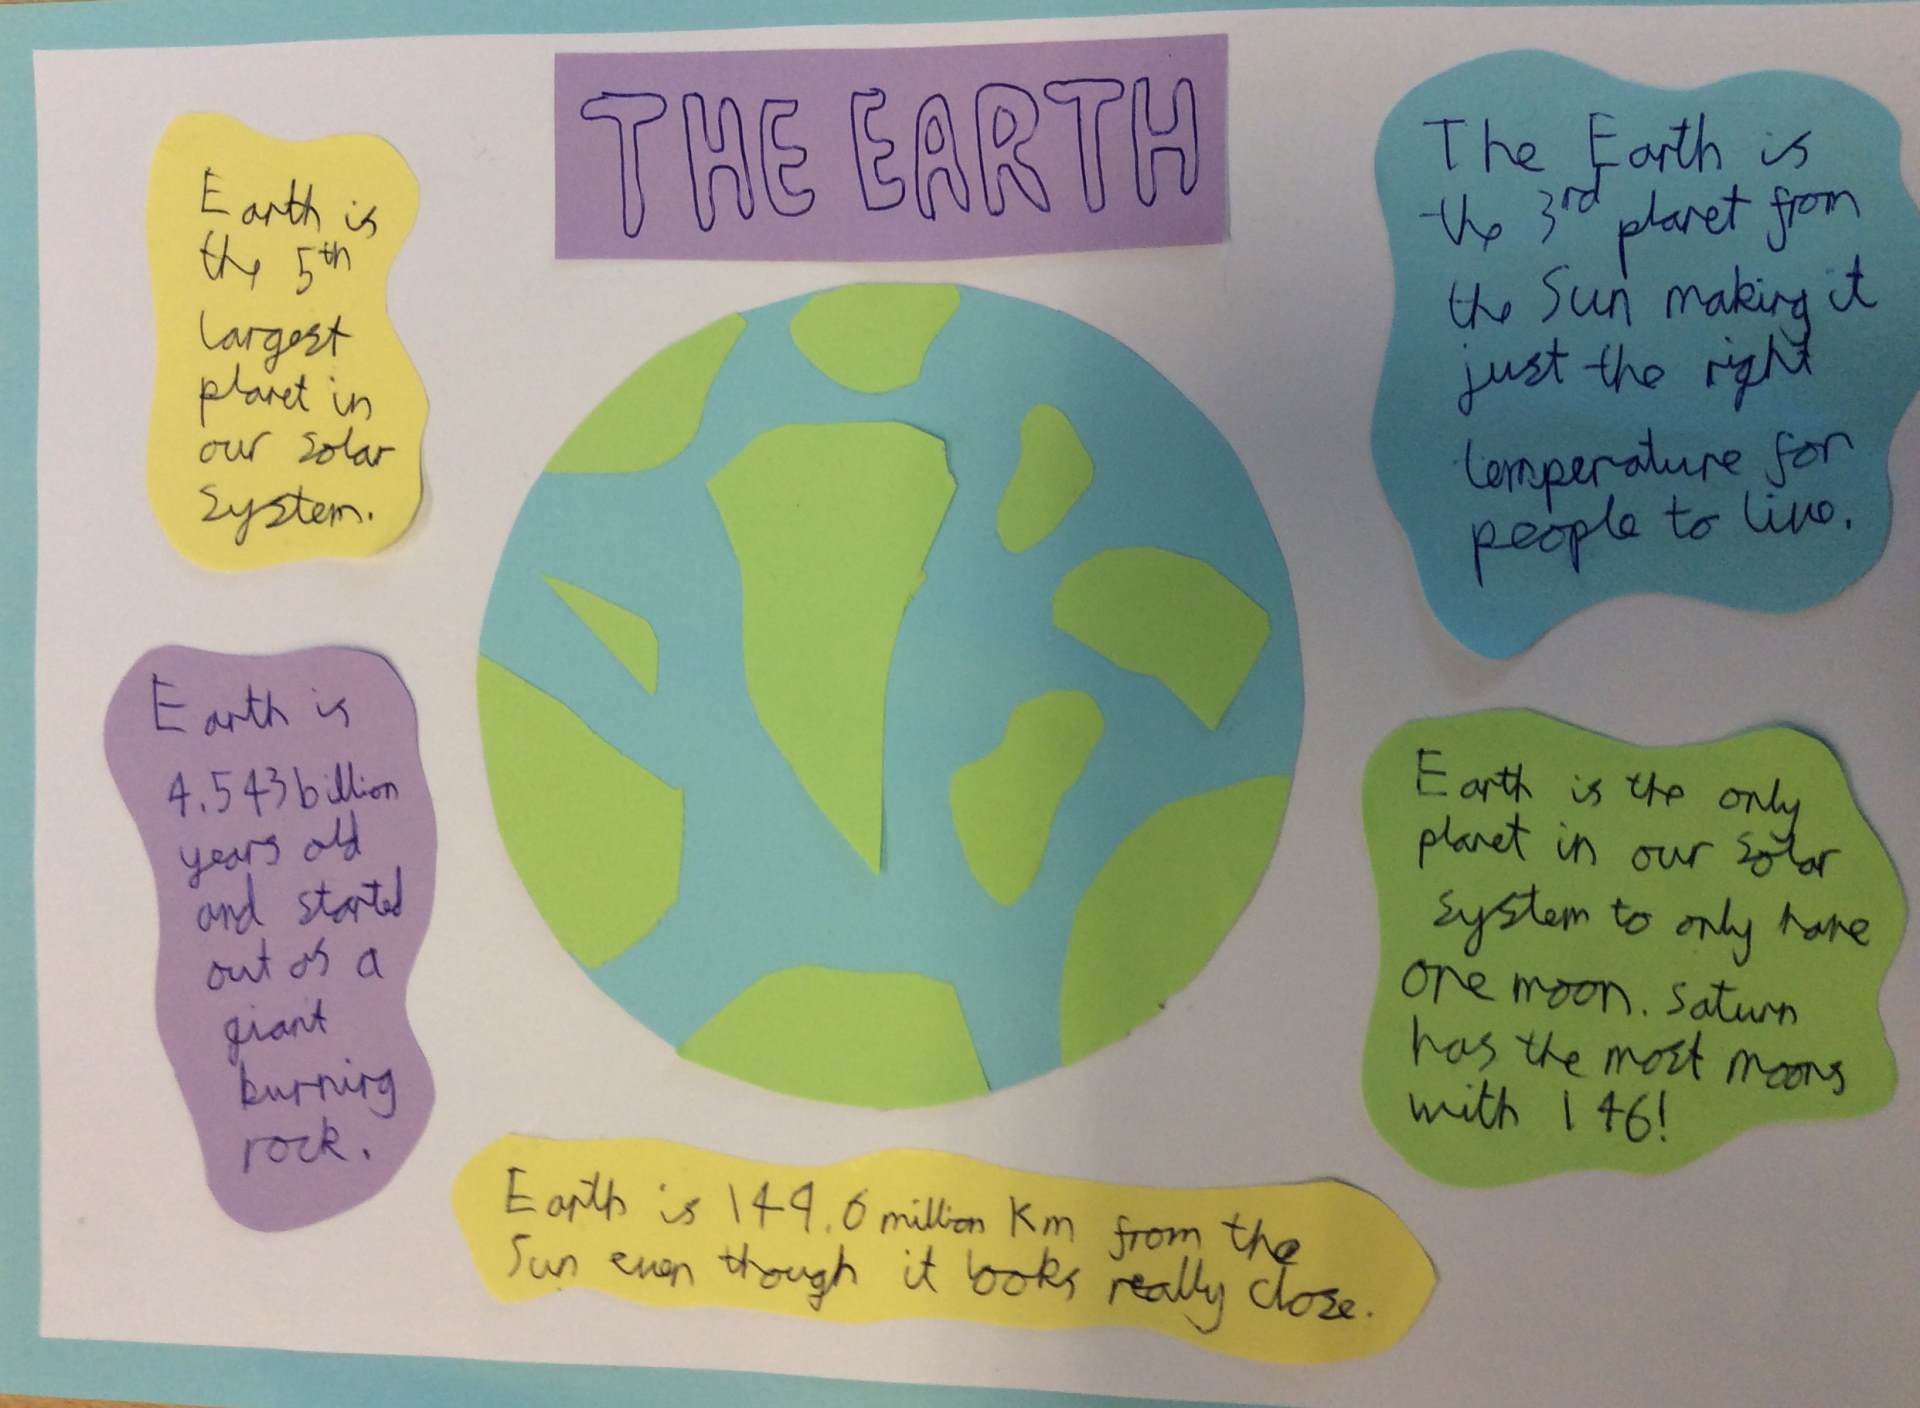 THE EARTH
Earth is
the 5th
largest
planet in
our solar
system.
The Earth is
the 3rd planet from
the Sun making it
just the right
temperature for
people to live.
Earth is
4.543 billion
years old
and started
out as a
giant
burning
rock.
Earth is the only
planet in our solar
system to only have
one moon. Saturn
has the most moons
with 146!
Earth is 149.6 million Km from the
Sun even though it looks really close.